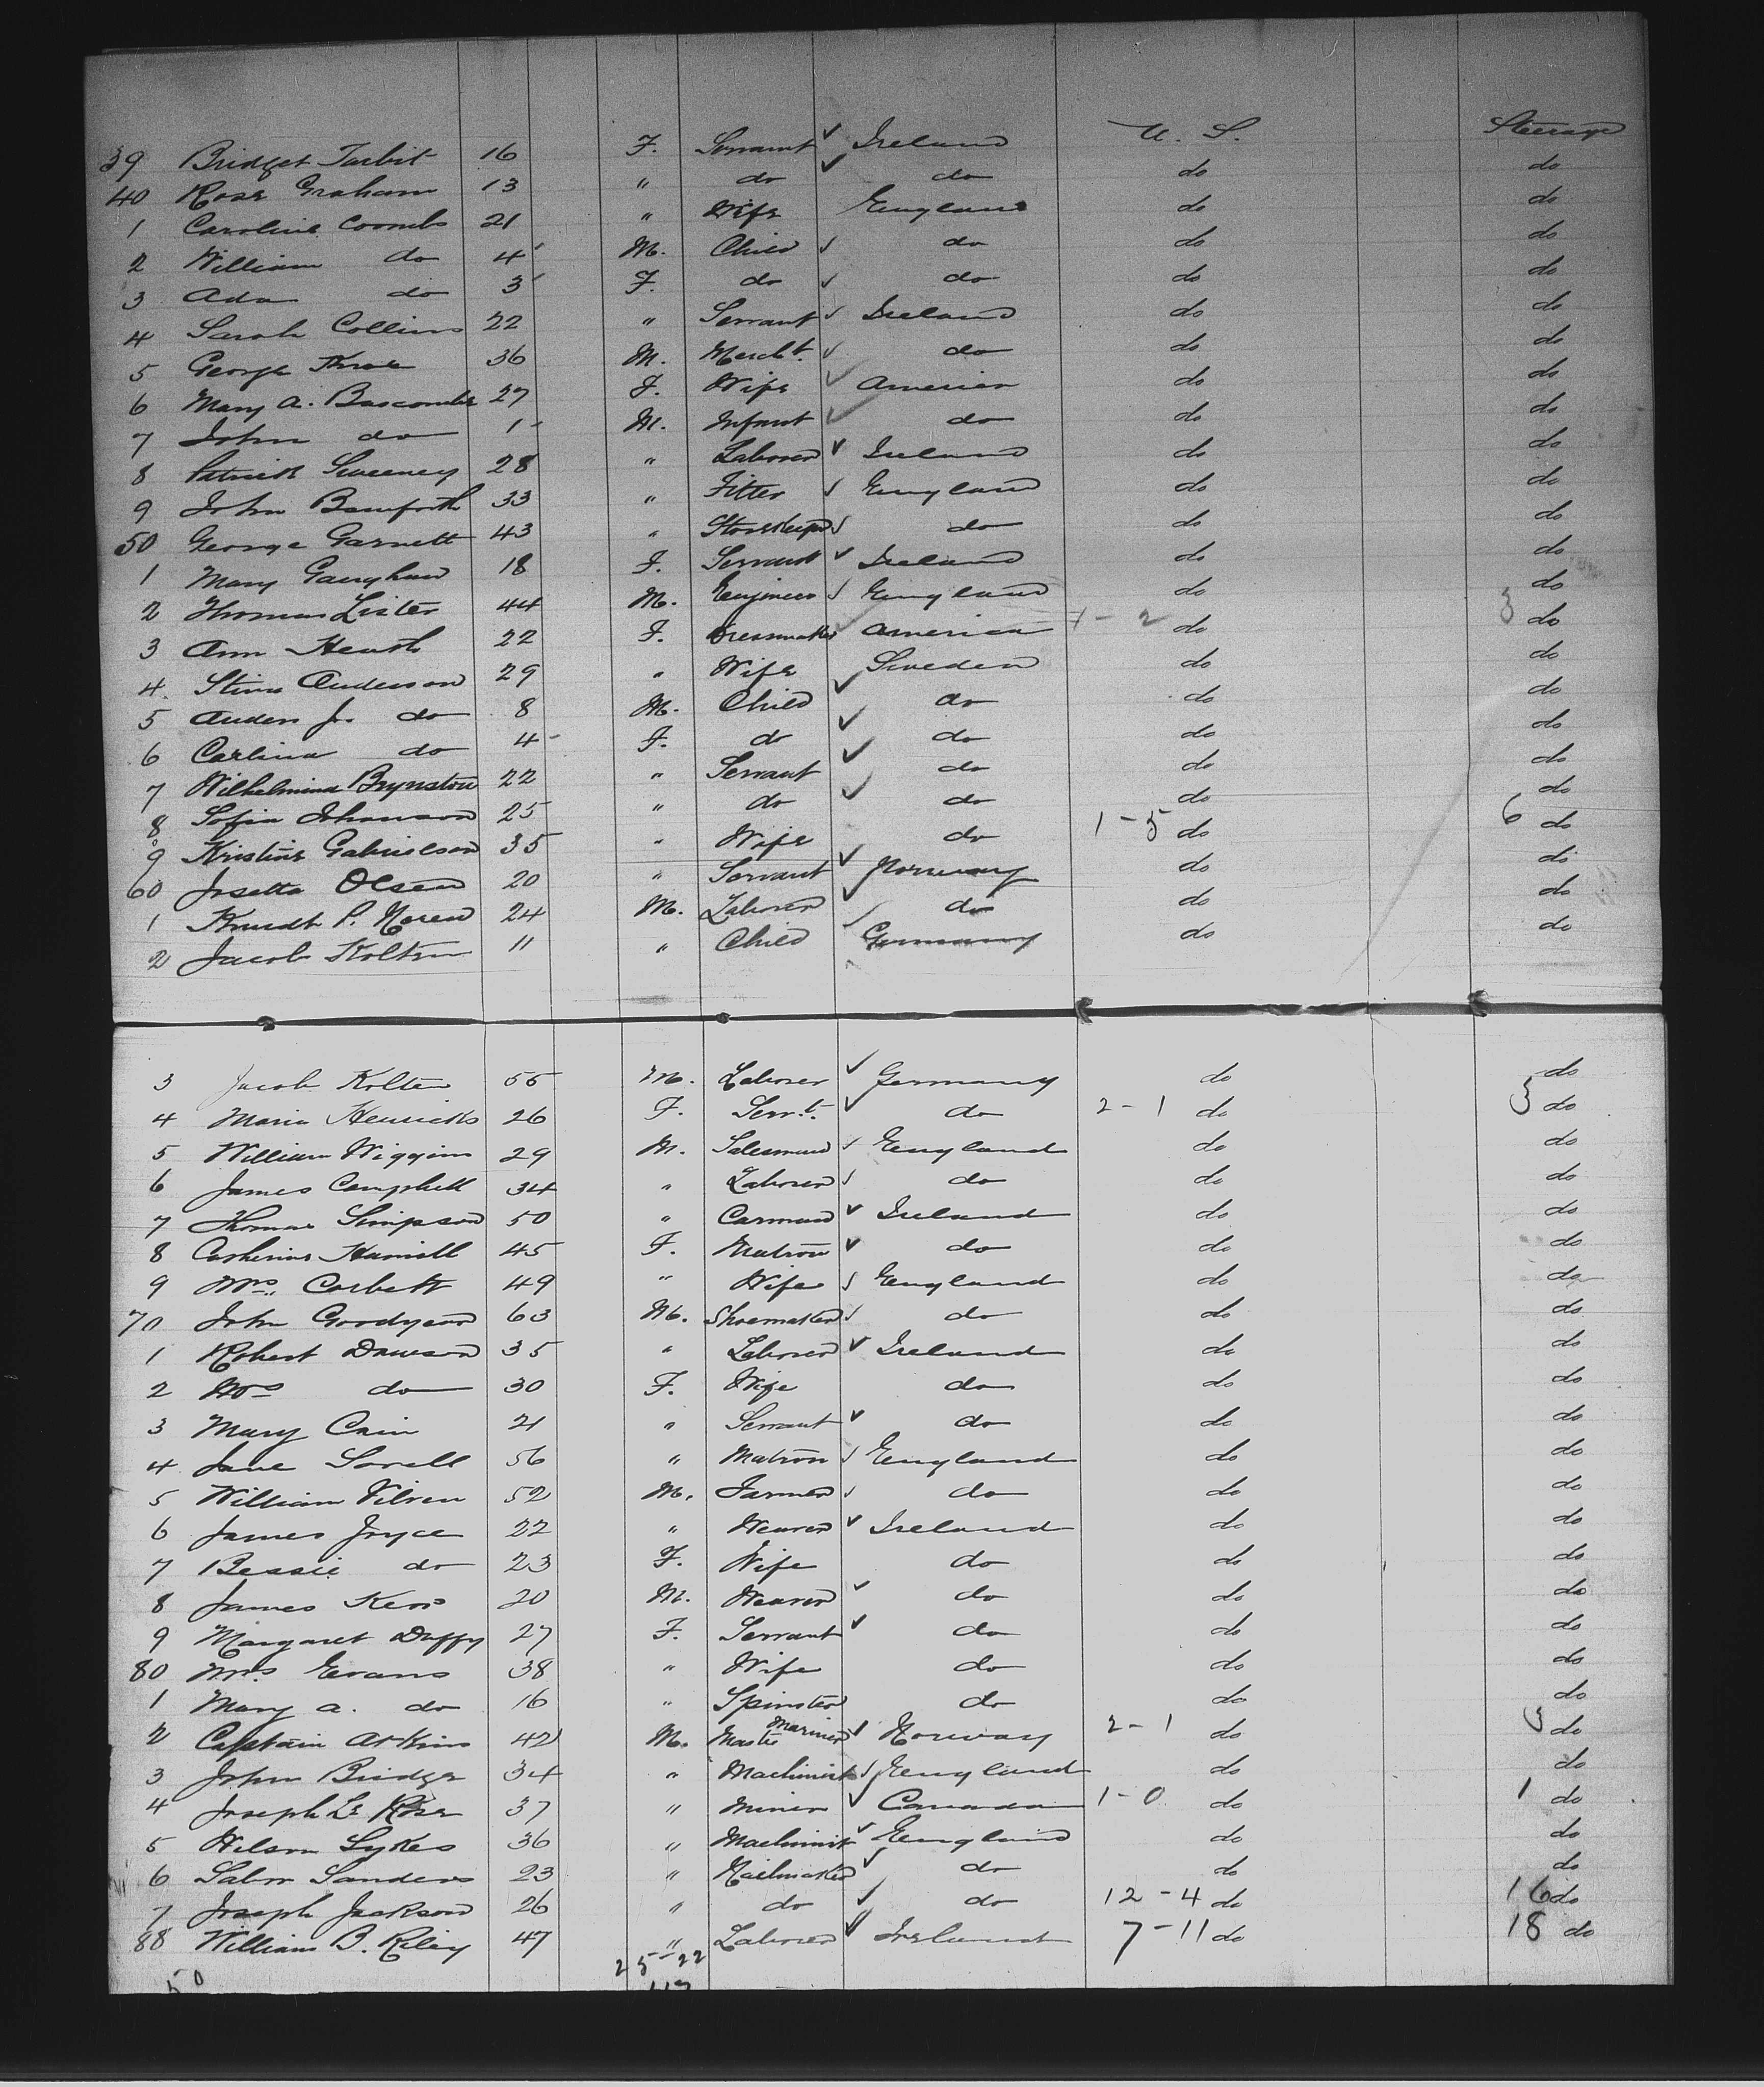 39 Bridget Turbit 16 F. Servant ✓ Ireland U. S. Steerage
40 Rose Graham 13 " do ✓ do do do
1 Caroline Coombs 21 " Wife England do do
2 William do 4 M. Child ✓ do do do
3 Ada do 3 F. do ✓ do do do
4 Sarah Collins 22 " Servant ✓ Ireland do do
5 George 36 M. Mercht. ✓ do do do
6 Mary A. Bascombe 27 F. Wife ✓ America do do
7 John do 1 M. Infant ✓ do do do
8 Patrick Sweeney 28 " Laborer ✓ Ireland do do
9 John Bamforth 33 " Fitter ✓ England do do
50 George Garnett 43 " Storekeeper ✓ do do do
1 Mary Gaughan 18 F. Servant ✓ Ireland do do
2 Thomas Lister 44 M. Engineer ✓ England do do
3 Ann Heath 22 F. Dressmaker ✓ America 1 - 2 do 3 do
4 Stina Anderson 29 " Wife Sweden do do
5 Anders Jr. do 8 M. Child ✓ do do do
6 Carlina do 4 F. do ✓ do do do
7 Wilhelmina Brynston 22 " Servant ✓ do do do
8 Sofia Johanson 25 " do ✓ do do do
9 Kristine Gabrielson 35 " Wife do 1 - 5 do 6 do
60 Josetta Olsen 20 " Servant ✓ Norway do do
1 Knudt P. Noren 24 M. Laborer ✓ do do do
2 Jacob Kolten 11 " Child ✓ Germany do do
3 Jacob Kolten 55 M. Laborer ✓ Germany do do
4 Maria Henricks 26 F. Servt. ✓ do 2 - 1 do 3 do
5 William Wiggins 29 M. Salesman ✓ England do do
6 James Campbell 34 " Laborer ✓ do do do
7 Thomas Simpson 50 " Carman ✓ Ireland do do
8 Catherine Hamill 45 F. Matron ✓ do do do
9 Mrs. Corbett 49 " Wife ✓ England do do
70 John Goodyear 63 M. Shoemaker ✓ do do do
1 Robert Dawson 35 " Laborer ✓ Ireland do do
2 Mrs do 30 F. Wife do do do
3 Mary Cain 21 " Servant ✓ do do do
4 Jane Sorell 56 " Matron ✓ England do do
5 William Vilven 52 M. Farmer ✓ do do do
6 James Joyce 22 " Weaver ✓ Ireland do do
7 Bessie do 23 F. Wife do do do
8 James Kerr 20 M. Weaver ✓ do do do
9 Margaret Duffy 27 F. Servant ✓ do do do
80 Mrs. Evans 38 " Wife do do do
1 Mary A. do 16 " Spinster do do do
2 Captain Atkins 42 M. Master Mariner ✓ Norway 2 - 1 do 3 do
3 John Bridge 34 " Machinist ✓ England do do
4 Joseph Le Rose 37 " Miner ✓ Canada 1 - 0 do 1 do
5 Wilson Sykes 36 " Machinist ✓ England do do
6 Sanders 23 " Nailmaker ✓ do do do
7 Joseph Jackson 26 " do ✓ do 12 - 4 do 16 do
88 William B. Riley 47 " Laborer ✓ Ireland 7 - 11 do 18 do
50 25 - 22